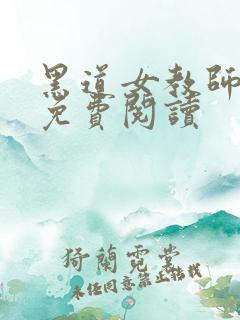 黑道女教師
免費閱讀
猗蘭霓裳
未经同意禁止转载